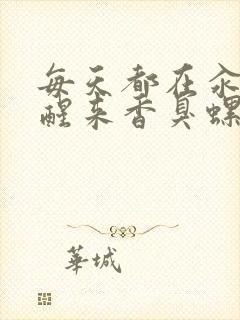 每天都在汆
醒来香臭螺
華城